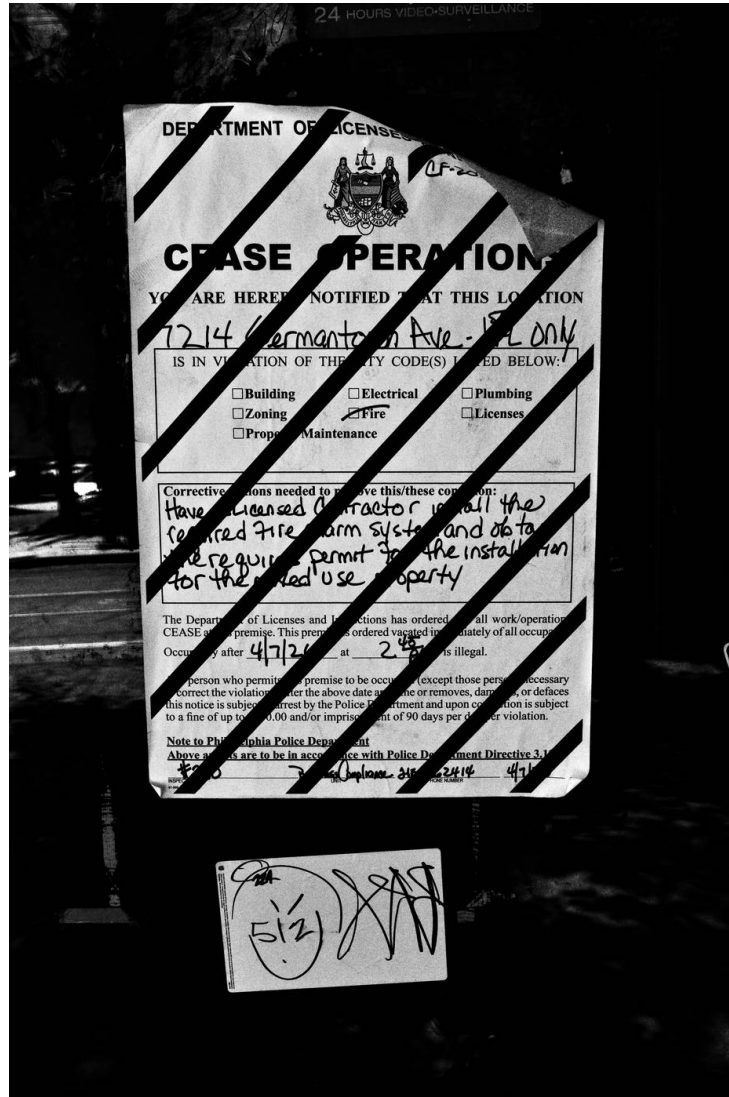 24 HOURS VIDEO•SURVEILLANCE
DEPARTMENT OF LICENSES
CF-20
CEASE OPERATIONS
YOU ARE HEREBY NOTIFIED THAT THIS LOCATION
7214 Germantown Ave - 1FL only
IS IN VIOLATION OF THE CITY CODE(S) LISTED BELOW:
☐Building ☐Electrical ☐Plumbing
☐Zoning ☐Fire ☐Licenses
☐Property Maintenance
Corrective actions needed to remove this/these condition:
Have Licensed Contractor install the
required Fire Alarm system and obtain
the required permit for the installation
for the mixed use property
The Department of Licenses and Inspections has ordered all work/operation
CEASE at premise. This premise is ordered vacated immediately of all occupants
Occupancy after 4/7/2 at 2 45 is illegal.
person who permits premise to be occupied (except those persons necessary
correct the violation) after the above date and time or removes, damages, or defaces
this notice is subject to arrest by the Police Department and upon conviction is subject
to a fine of up to 0.00 and/or imprisonment of 90 days per day per violation.
Note to Philadelphia Police Department
Above actions are to be in accordance with Police Department Directive 3.1
Compliance 2414 4/7/
UNIT PHONE NUMBER
512